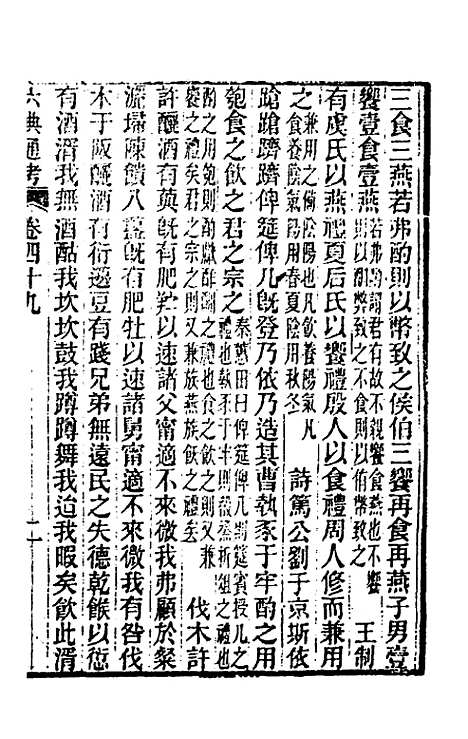 三食三燕若弗酌則以幣致之侯伯三饗再食再燕子男壹
饗壹食壹燕若弗酌謂君有故不親饗食燕也不饗則以酬幣致之不食則以侑幣致之 王制
有虞氏以燕禮夏后氏以饗禮殷人以食禮周人修而兼用
之兼用之備陰陽也凡飲養陽氣凡食養陰氣陽用春夏陰用秋冬 詩篤公劉于京斯依
蹌蹌躋躋俾筵俾几既登乃依乃造其曹執豕于牢酌之用
匏食之飲之君之宗之秦蕙田曰俾筵俾几者賓授几之禮也執豕于牢則殽烝折俎之禮也酌之用匏則酌獻酢酬之禮也食之飲之則又兼饗之禮矣君之宗之則又兼族燕族飲之禮矣 伐木許
許釃酒有藇既有肥羜以速諸父甯適不來微我弗顧於粲
洒埽陳饋八簋既有肥牡以速諸舅甯適不來微我有咎伐
木于阪釃酒有衍籩豆有踐兄弟無遠民之失德乾餱以愆
有酒湑我無酒酤我坎坎鼓我蹲蹲舞我迨我暇矣飲此湑
六典通考 卷四十九